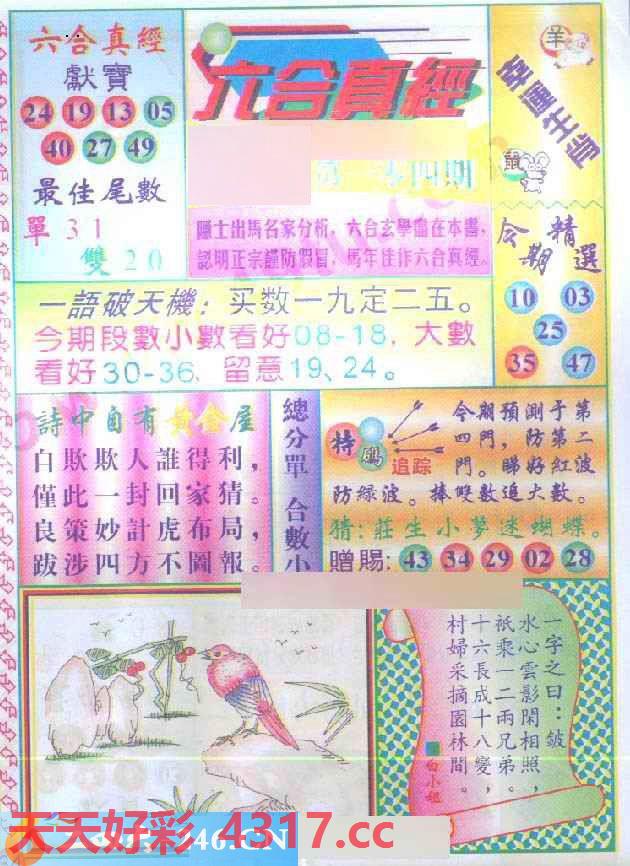 六合真經
獻寶
24 19 13 05
40 27 49
最佳尾數
單 3 1
雙 2 0
六合真經
零四期
隱士出馬名家分析，六合玄學盡在本書，
認明正宗謹防假冒，馬年佳作六合真經。
幸運生肖
羊
鼠
今期精選
10 03
25
35 47
一語破天機：买数一九定二五。
今期段數小數看好08-18，大數
看好30-36、留意19、24。
詩中自有黃金屋
自欺欺人誰得利，
僅此一封回家猜。
良策妙計虎布局，
跋涉四方不圖報。
總分單 合數小
特碼
追踪
今期預測于第
四門，防第二
門。睇好紅波
防綠波。捧雙數追大數。
猜：莊生小夢迷蝴蝶。
贈賜：43 34 29 02 28
一字之曰：皴
水心雲影閑相照，
祇乘一二兩兄弟。
十六長成十八變，
村婦采摘園林間。
白小姐
天天好彩 4317.cc
246.CN